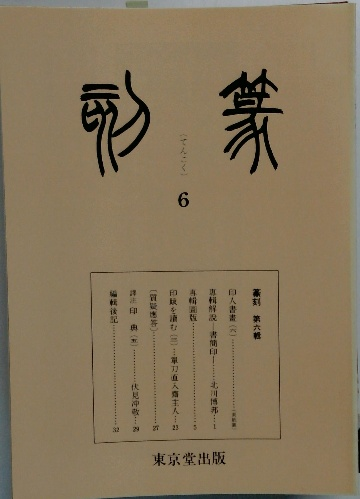 篆刻
（てんこく）
6
篆刻 第六輯
印人書畫（六）
專輯解説—書簡印—……北川博邦…1
專輯圖版……5
印跋を讀む（三）…單刀直入齋主人…23
〔質疑應答〕……27
譯注 印典（五）……伏見冲敬…29
編輯後記……32
東京堂出版